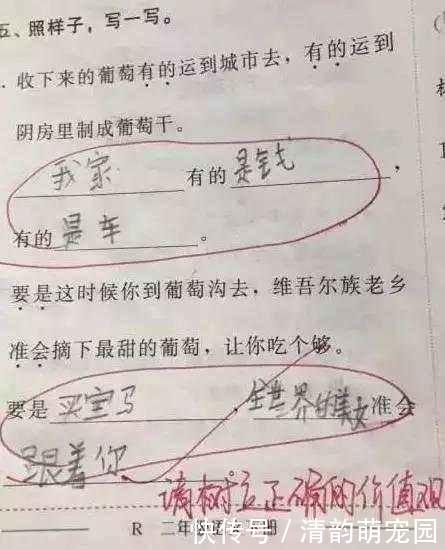 五、照样子，写一写。
收下来的葡萄有的运到城市去，有的运到
阴房里制成葡萄干。
我家有的是钱，
有的是车。
要是这时候你到葡萄沟去，维吾尔族老乡
准会摘下最甜的葡萄，让你吃个够。
要是买宝马，全世界的美女准会
跟着你
请树立正确的价值观
R 二年级
快传号／清韵萌宠园